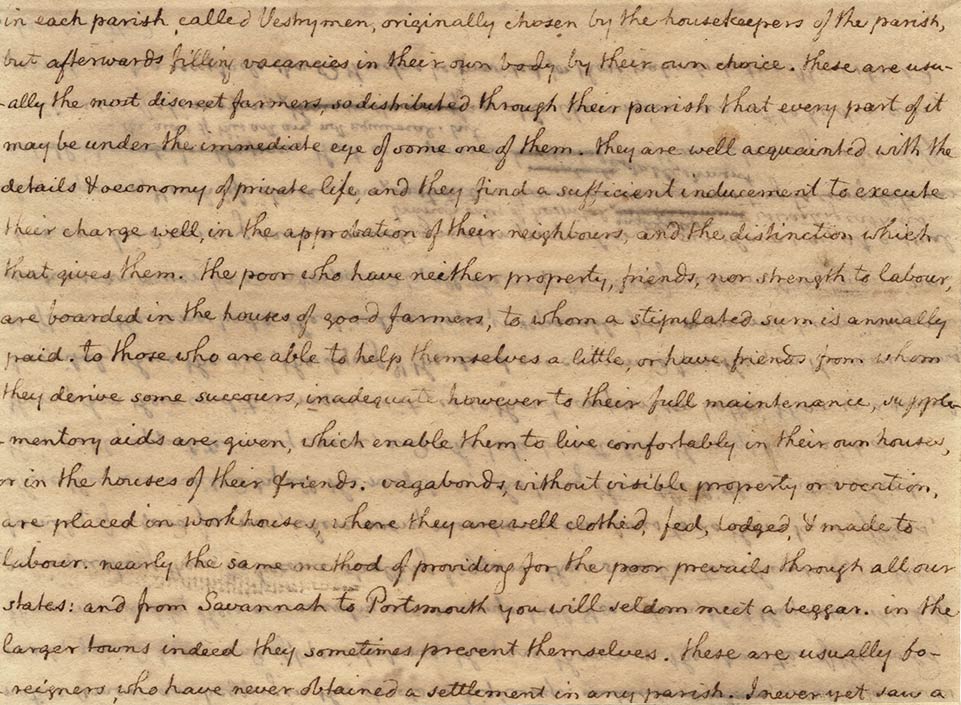 in each parish, called Vestrymen, originally chosen by the housekeepers of the parish,
but afterwards filling vacancies in their own body by their own choice. these are usu-
-ally the most discreet farmers, so distributed through their parish that every part of it
may be under the immediate eye of some one of them. they are well acquainted with the
details & oeconomy of private life, and they find a sufficient inducement to execute
their charge well, in the approbation of their neighbours, and the distinction which
that gives them. the poor who have neither property, friends, nor strength to labour,
are boarded in the houses of good farmers, to whom a stipulated sum is annually
paid. to those who are able to help themselves a little, or have friends from whom
they derive some succours, inadequate however to their full maintenance, supple-
-mentory aids are given, which enable them to live comfortably in their own houses,
or in the houses of their friends. vagabonds, without visible property or vocation,
are placed in workhouses, where they are well clothed, fed, lodged, & made to
labour. nearly the same method of providing for the poor prevails through all our
states: and from Savannah to Portsmouth you will seldom meet a beggar. in the
larger towns indeed they sometimes present themselves. these are usually fo-
reigners, who have never obtained a settlement in any parish. I never yet saw a